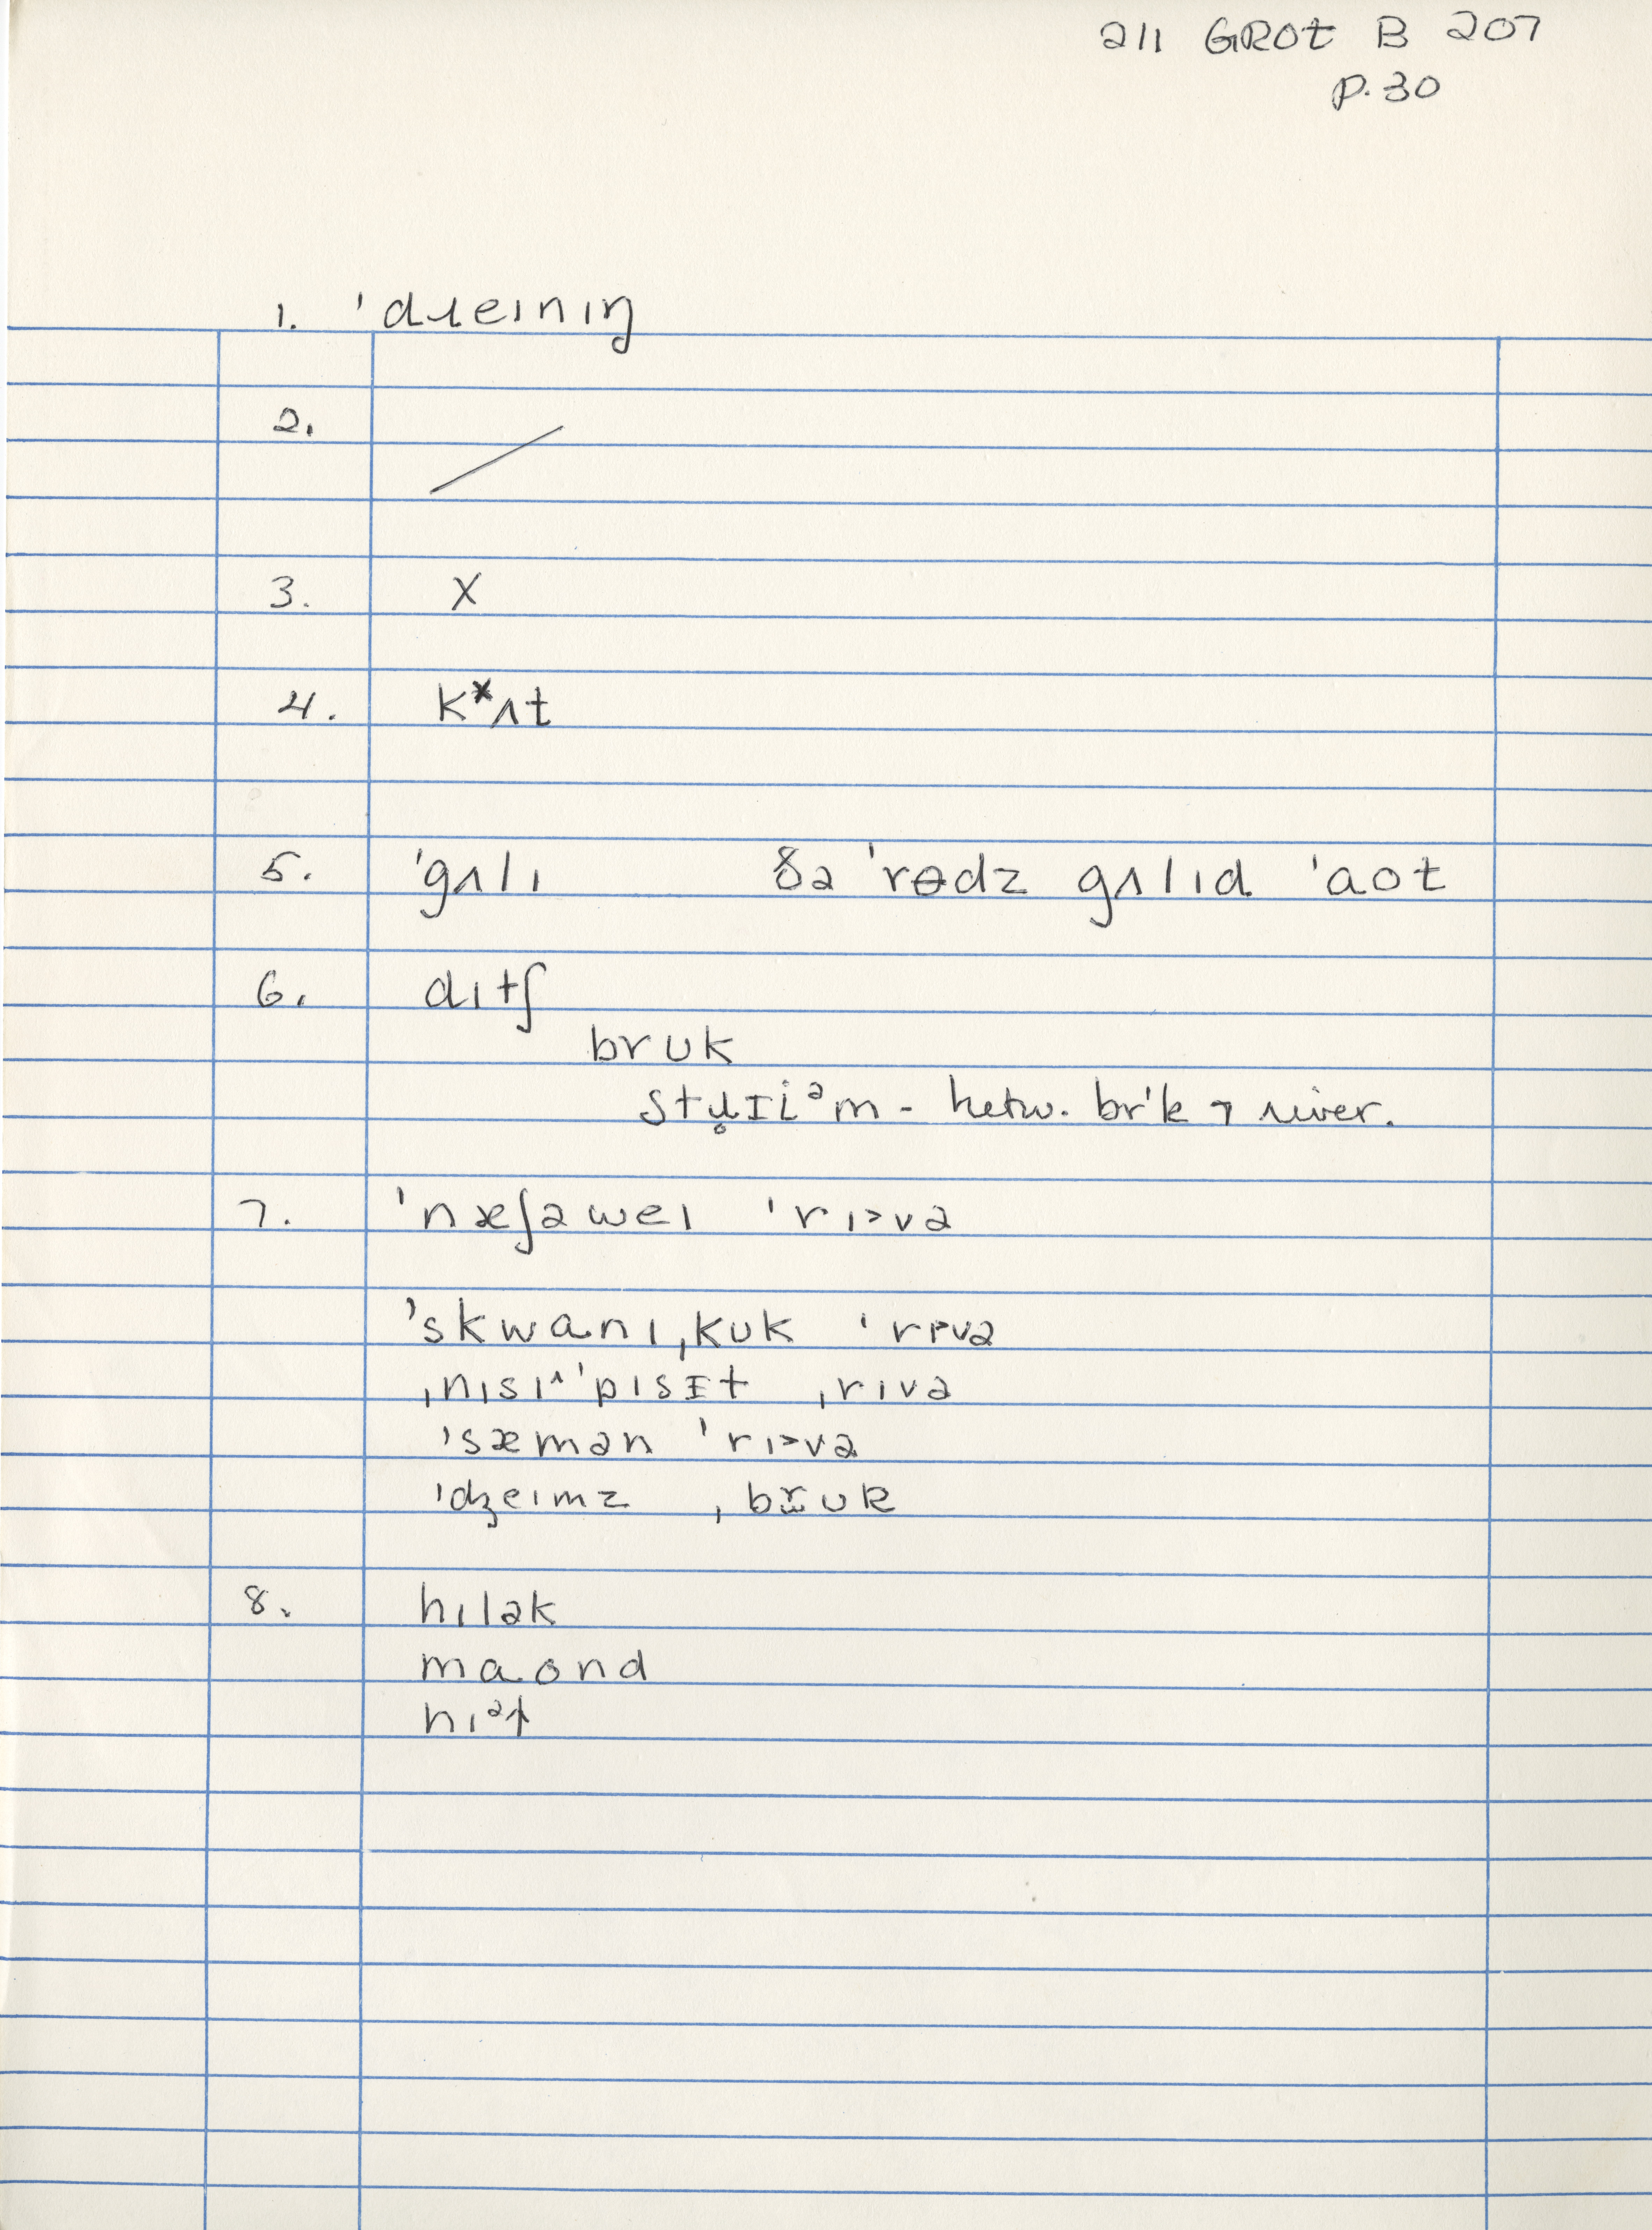 211 GROt B 207
p. 30
1. ˈdɹeɪnɪŋ
2. /
3. X
4. kˣʌt
5. ˈgʌlɪ ðə ˈrɵdz gʌlɪd ˈaot
6. dɪtʃ
brʊk
stɹ̥ɪi̇ᵊm - betw. br'k ⁊ river.
7. ˈnæʃəweɪ ˈrɪ˃və
ˈskwɑnɪˌkʊk ˈrɪ˃və
ˌnɪsɪ^ˈpɪsɪt ˌrɪvə
ˈsæmən ˈrɪ˃və
ˈdʒeɪmz ˌbr̆ʊk
8. hɪlək
maond